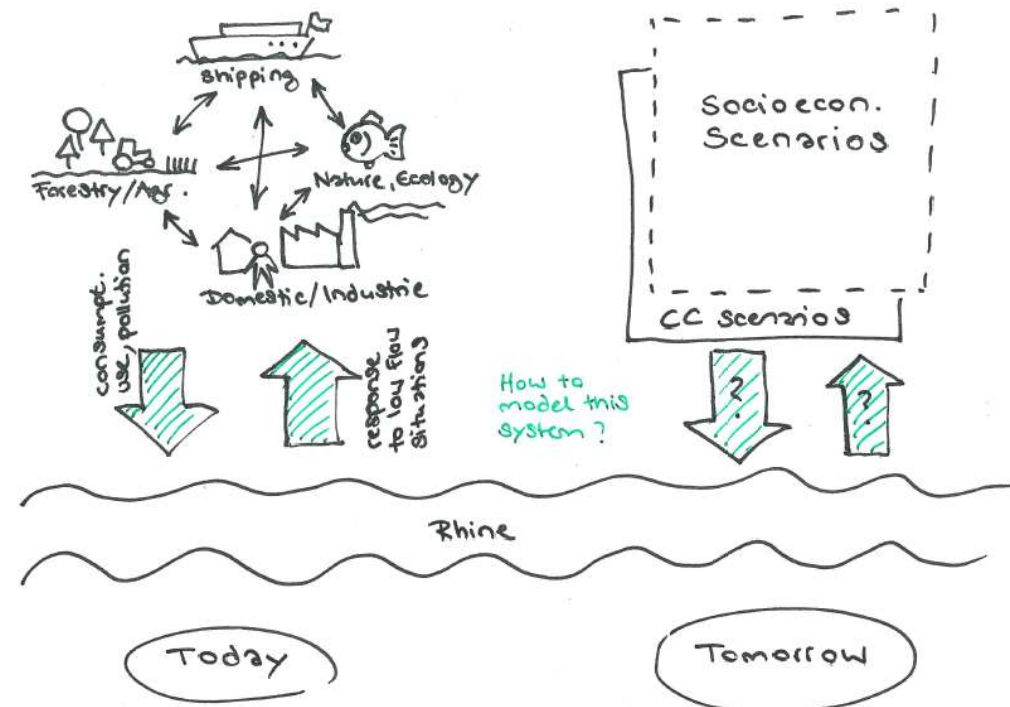 Shipping
Forestry/Agr.
Nature, Ecology
Domestic/Industrie
consumpt.
use, pollution
response
to low flow
situations
Socioecon.
Scenarios
CC scenarios
How to
model this
system?
?
?
Rhine
Today
Tomorrow